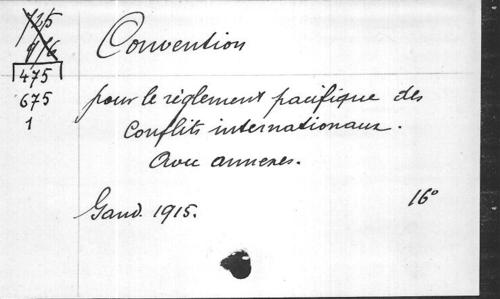 Convention
475
675
1
pour le règlement pacifique des
Conflits internationaux.
Avec annexes.
Gand. 1915.
16°